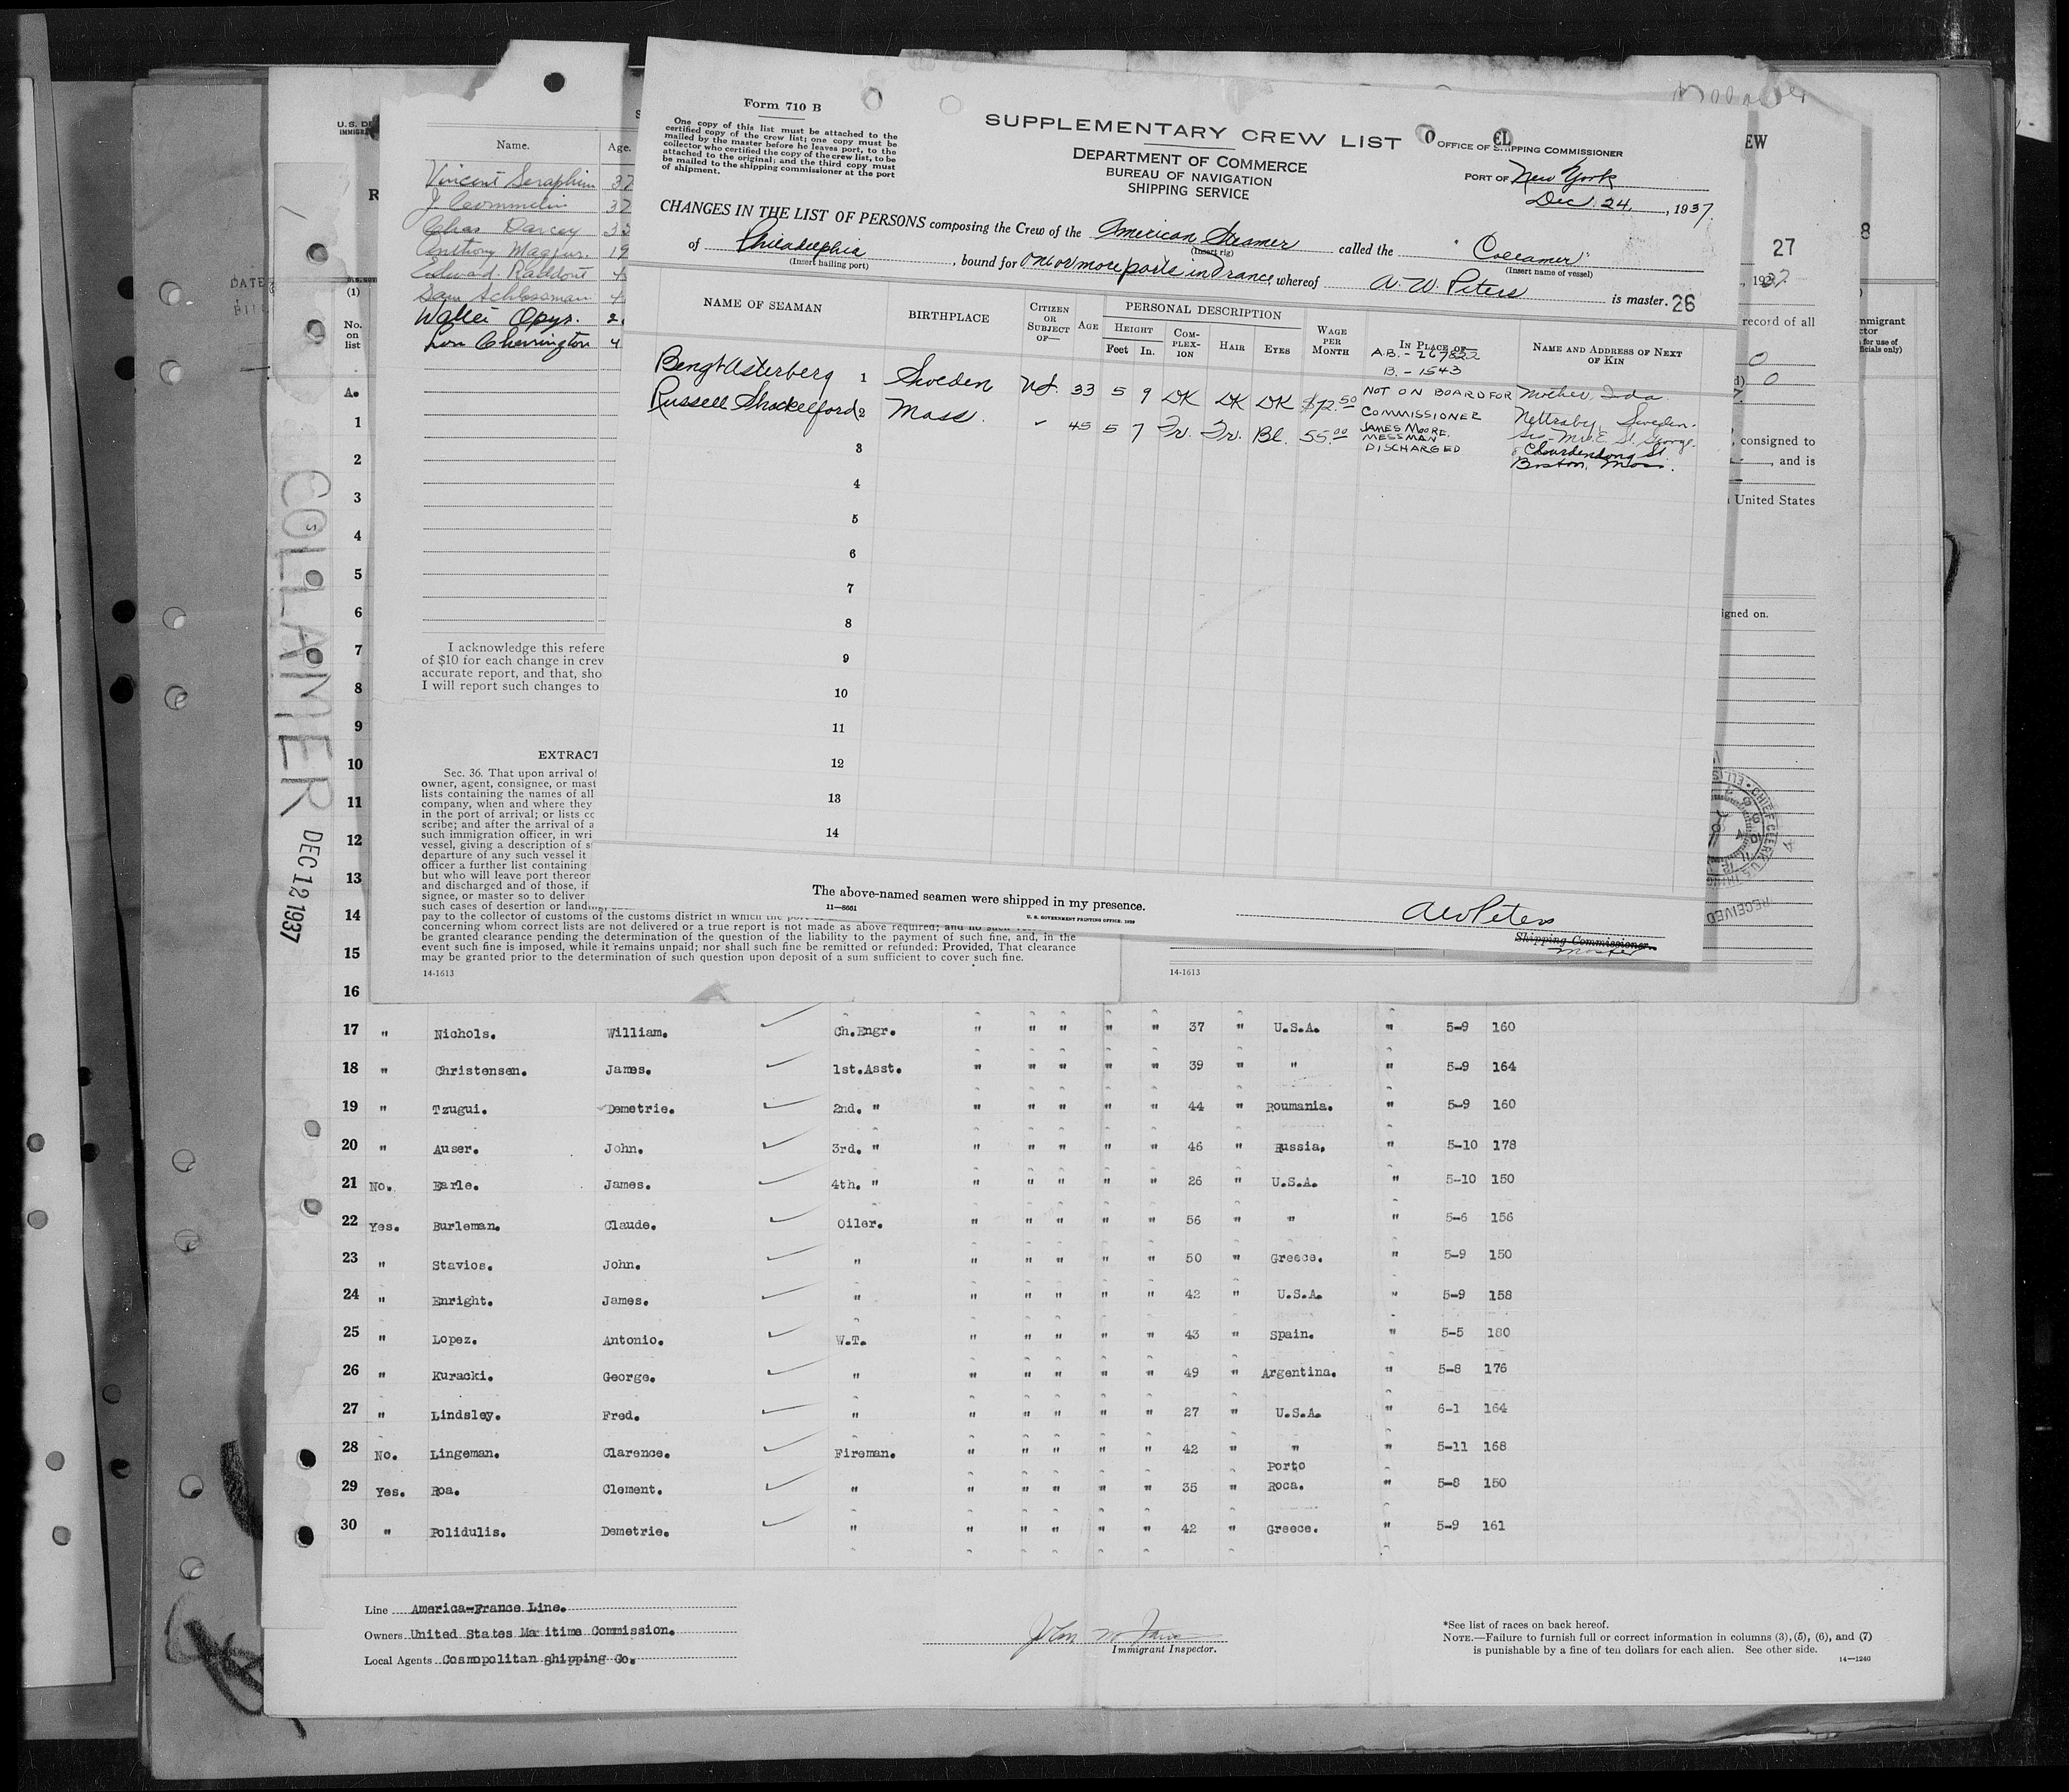 Form 710 B
One copy of this list must be attached to the
certified copy of the crew list; one copy must be
mailed by the master before he leaves port, to the
collector who certified the copy of the crew list, to be
attached to the original; and the third copy must
be mailed to the shipping commissioner at the port
of shipment.
SUPPLEMENTARY CREW LIST
DEPARTMENT OF COMMERCE
BUREAU OF NAVIGATION
SHIPPING SERVICE
OFFICE OF SHIPPING COMMISSIONER
PORT OF New York
Dec. 24, 1937.
CHANGES IN THE LIST OF PERSONS composing the Crew of the American Steamer called the "Collamer"
(Insert rig)
(Insert name of vessel)
of Philadelphia, bound for one or more ports in France, whereof A. W. Peters is master. 26
(Insert hailing port)
NAME OF SEAMAN BIRTHPLACE CITIZEN OR SUBJECT OF— AGE PERSONAL DESCRIPTION WAGE PER MONTH IN PLACE OF— NAME AND ADDRESS OF NEXT OF KIN
HEIGHT COMPLEXION HAIR EYES
Feet In.
A.B. - 267822
B. - 1543
Bengt Asterberg 1 Sweden US. 33 5 9 DK DK DK $72.50 NOT ON BOARD FOR COMMISSIONER Mother, Ida Nettraby, Sweden.
Russell Shackelford 2 Mass. 45 5 7 Fr. Fr. Bl. 55.00 JAMES MOORE. MESSMAN DISCHARGED
Boston, Mass.
3
4
5
6
7
8
9
10
11
12
13
14
The above-named seamen were shipped in my presence.
11—8661
U. S. GOVERNMENT PRINTING OFFICE: 1929
AW Peters
Shipping Commissioner.
Master
EW
27
8
, 1937
record of all
0
0
, consigned to
, and is
United States
igned on.
mmigrant
for use of
ficials only)
Name. Age.
Vincent Seraphin 37
J. Commelin 37
Chas Darcey 33
Anthony Magjur. 19
Edward Raddout 4
Sam Schlossman 4
Walter Opyr. 2
Lou Cherrington 4
I acknowledge this refere
of $10 for each change in crew
accurate report, and that, sho
I will report such changes to
EXTRACT
Sec. 36. That upon arrival of
owner, agent, consignee, or mast
lists containing the names of all
company, when and where they
in the port of arrival; or lists co
scribe; and after the arrival of a
such immigration officer, in wri
vessel, giving a description of s
departure of any such vessel it
officer a further list containing
but who will leave port thereon
and discharged and of those, if
signee, or master so to deliver
such cases of desertion or landing,
pay to the collector of customs of the customs district in which the
concerning whom correct lists are not delivered or a true report is not made as above required; and no such
be granted clearance pending the determination of the question of the liability to the payment of such fine, and, in the
event such fine is imposed, while it remains unpaid; nor shall such fine be remitted or refunded: Provided, That clearance
may be granted prior to the determination of such question upon deposit of a sum sufficient to cover such fine.
14-1613
14-1613
COLLAMER DEC 12 1937
(1)
No.
on
list
1
2
3
4
5
6
7
8
9
10
11
12
13
14
15
16
17 " Nichols. William. Ch.Engr. " " " " " 37 " U.S.A. " 5-9 160
18 " Christensen. James. 1st.Asst. " " " " " 39 " " " 5-9 164
19 " Tzugui. Demetrie. 2nd. " " " " " " 44 " Roumania. " 5-9 160
20 " Auser. John. 3rd. " " " " " " 46 " Russia. " 5-10 178
21 No. Earle. James. 4th. " " " " " " 26 " U.S.A. " 5-10 150
22 Yes. Burleman. Claude. Oiler. " " " " " 56 " " " 5-6 156
23 " Stavios. John. " " " " " " 50 " Greece. " 5-9 150
24 " Enright. James. " " " " " " 42 " U.S.A. " 5-9 158
25 " Lopez. Antonio. W.T. " " " " " 43 " Spain. " 5-5 180
26 " Kuracki. George. " " " " " " 49 " Argentina. " 5-8 176
27 " Lindsley. Fred. " " " " " " 27 " U.S.A. " 6-1 164
28 No. Lingeman. Clarence. Fireman. " " " " " 42 " " " 5-11 168
29 Yes. Roa. Clement. " " " " " " 35 " Porto Roca. " 5-8 150
30 " Polidulis. Demetrie. " " " " " " 42 " Greece. " 5-9 161
Line America-France Line.
Owners United States Maritime Commission.
Local Agents Cosmopolitan Shipping Co.
Immigrant Inspector.
*See list of races on back hereof.
NOTE.—Failure to furnish full or correct information in columns (3), (5), (6), and (7)
is punishable by a fine of ten dollars for each alien. See other side.
14—1240